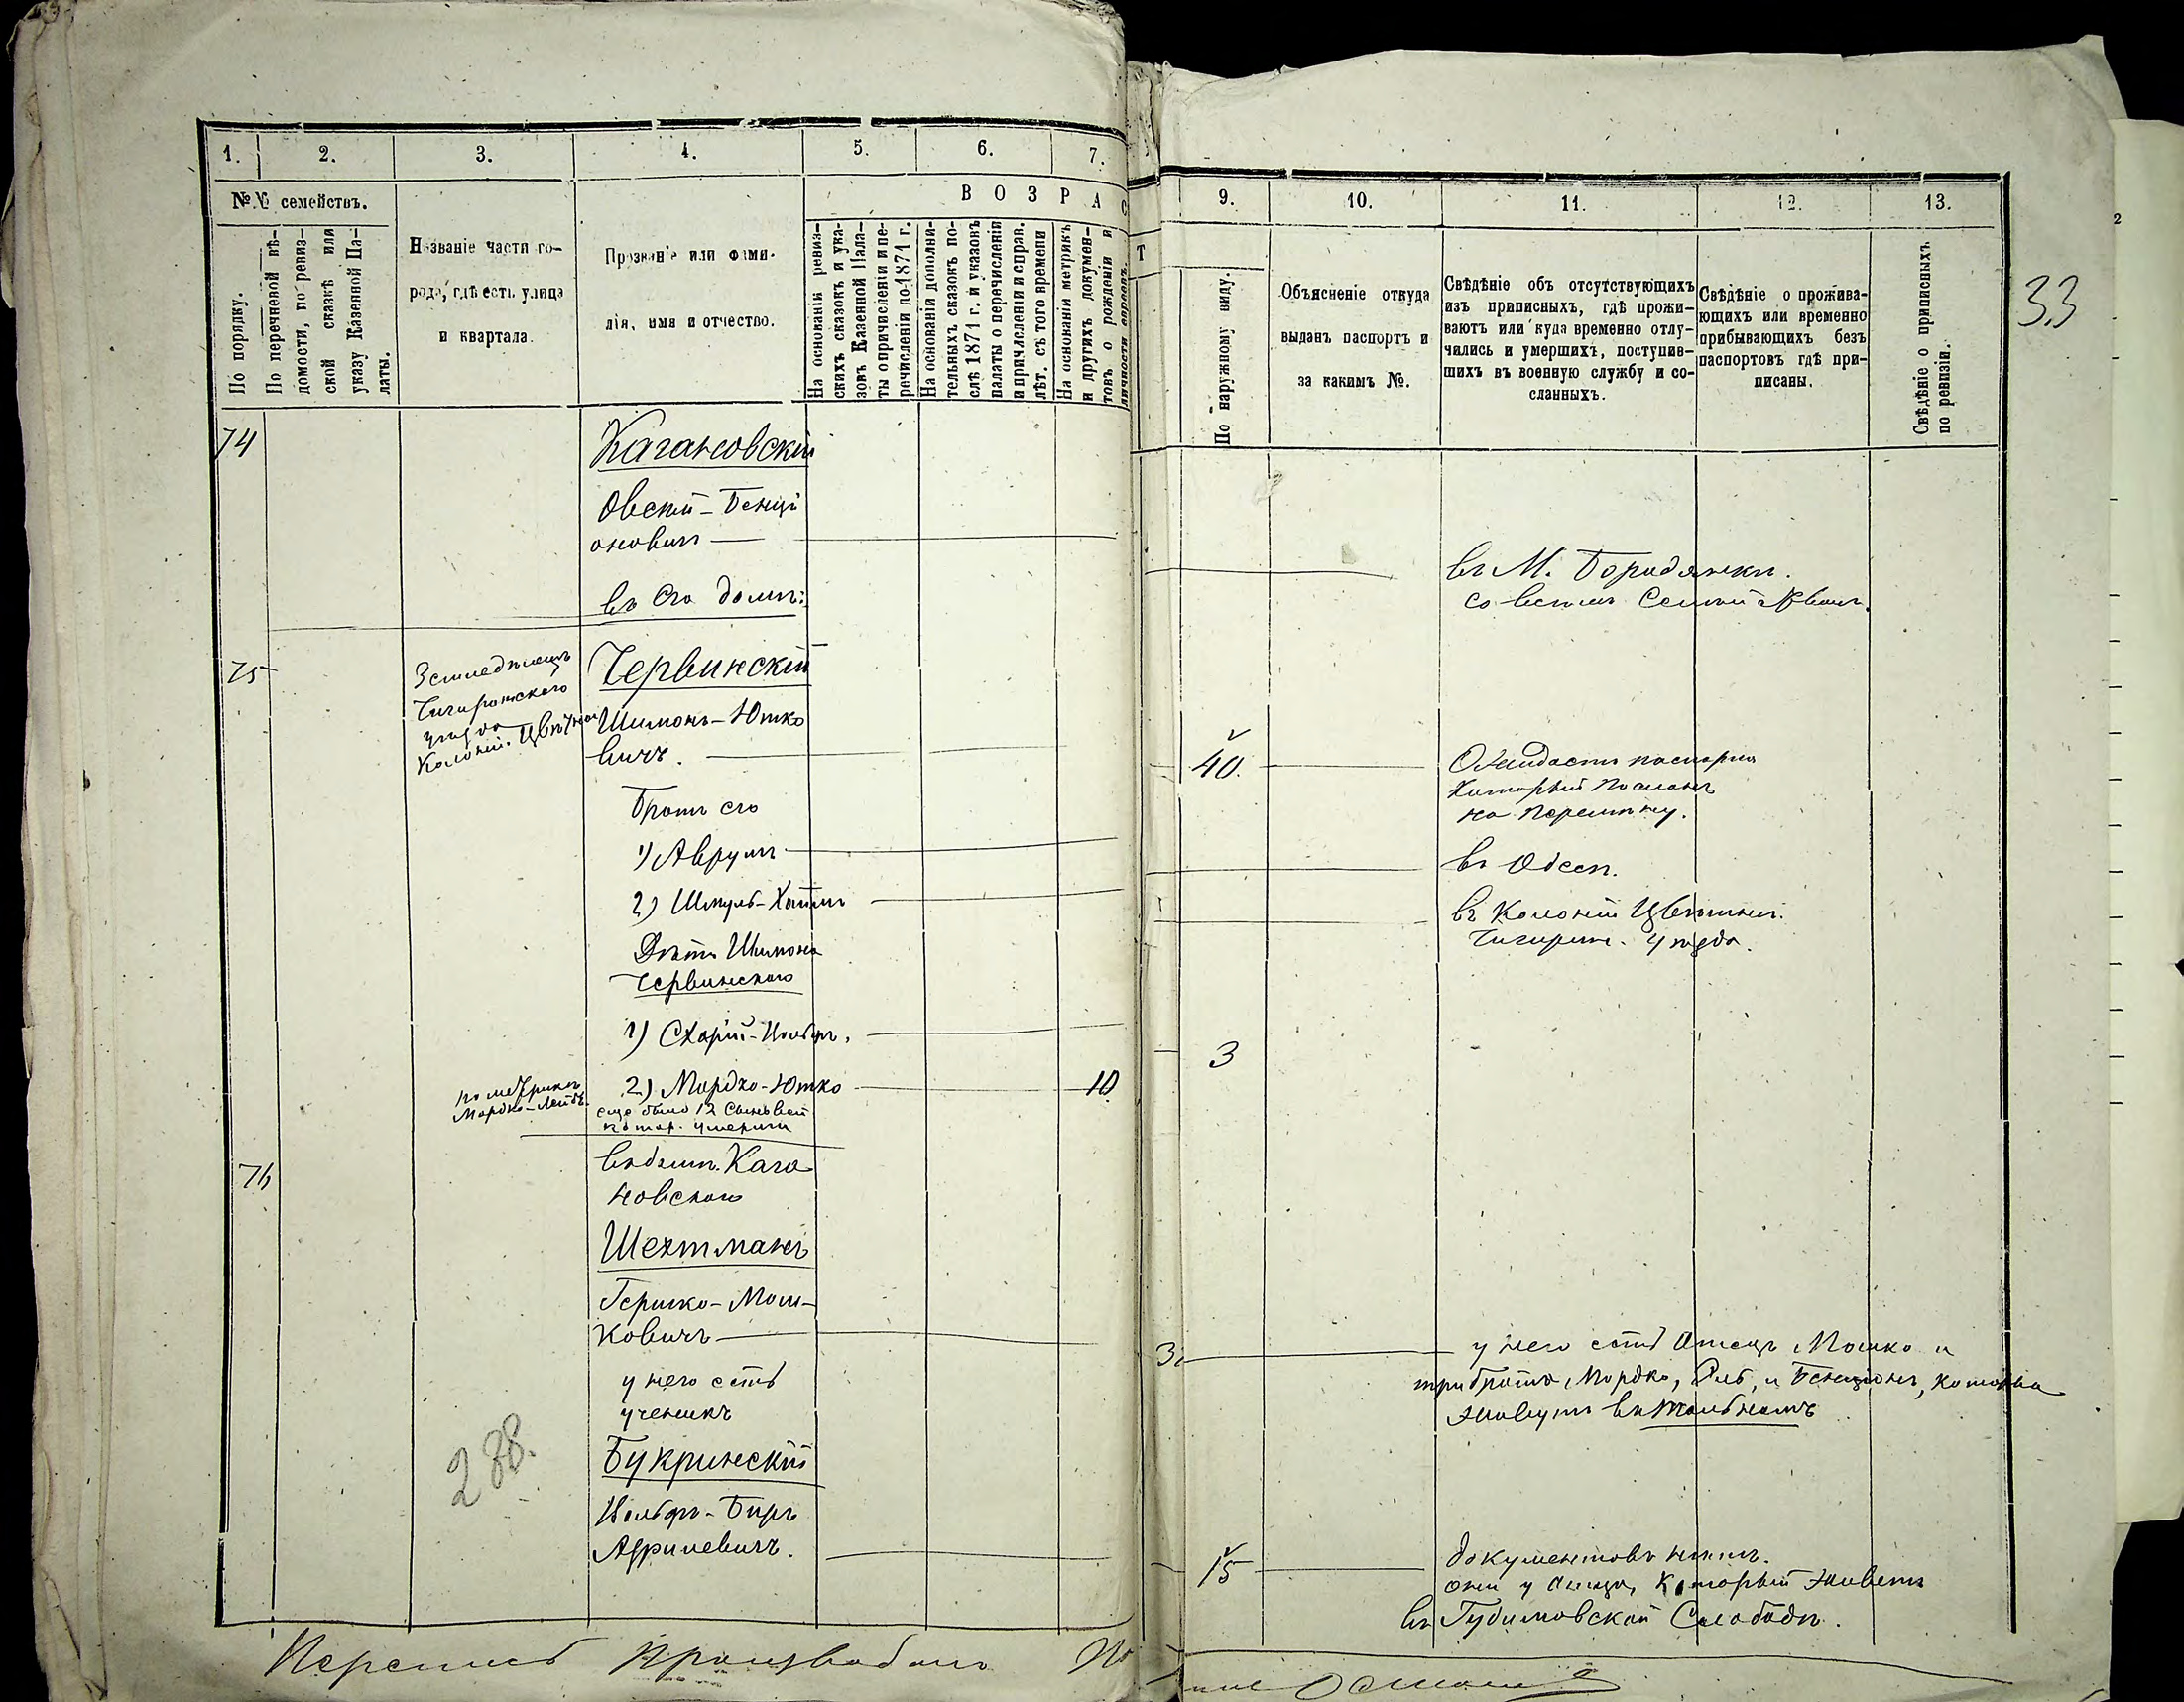 1.
2.
3.
4.
5.
6.
7.
№№ семействъ.
По порядку.
По перечневой вѣ-
домости, по ревиз-
ской сказкѣ или
указу Казенной Па-
латы.
Названіе части го-
рода, гдѣ есть улица
и квартала.
Прозваніе или фами-
лія, имя и отчество.
ВОЗРАС
На основаніи ревиз-
скихъ сказокъ и ука-
зовъ Казенной Пала-
ты о причисленіи и пе-
речисленіи до 1871 г.
На основаніи дополни-
тельныхъ сказокъ по-
слѣ 1871 г. и указовъ
палаты о перечисленіи
и причисленіи и справ.
лѣт. съ того времени
На основаніи метрикъ
и другихъ докумен-
товъ о рожденіи и
личности евреевъ.
74
Кагановскій
Овсей-Бенці
оновичъ
въ его домѣ:
75
Земледѣлецъ
Чигиринскаго
уѣзда
Колоніи Цвѣтной
Червинскій
Шимонъ-Ютко
вичъ.
Братъ его
1) Аврумъ
2) Шмуль-Хаимъ
Дѣти Шимона
Червинскаго
1) Схарій-Вольфъ.
по метрикѣ
Мордко-Лейбъ.
2) Мордко-Ютко
10
еще было 12 сыновей
котор. умерли
76
въ домѣ Кага
новскаго
Шехтманъ
Гершко-Мош-
ковичъ
у него есть
ученикъ
Букринскій
Вольфъ-Беръ
Азрилевичъ.
288.
Перепись производилъ
9.
10.
11.
12.
13.
Т
По наружному виду.
Объясненіе откуда
выданъ паспортъ и
за какимъ №.
Свѣдѣніе объ отсутствующихъ
изъ приписныхъ, гдѣ прожи-
ваютъ или куда временно отлу-
чились и умершихъ, поступив-
шихъ въ военную службу и со-
сланныхъ.
Свѣдѣніе о прожива-
ющихъ или временно
прибывающихъ безъ
паспортовъ гдѣ при-
писаны.
Свѣдѣніе о приписныхъ
по ревизіи.
33
въ М. Бородянки.
со всемъ Семействомъ.
40.
Ожидаетъ паспорта
который посланъ
на перемѣну.
въ Одесѣ.
въ Колоніи Цвѣтной.
Чигирин. уѣзда.
3
3
у него есть Отецъ Мошко и
три брата, Мордко, Эль, и Бенціонъ, которые
живутъ въ Тальномъ
15
документовъ нѣтъ.
они у отца, который живетъ
въ Гудимовской Слободѣ.